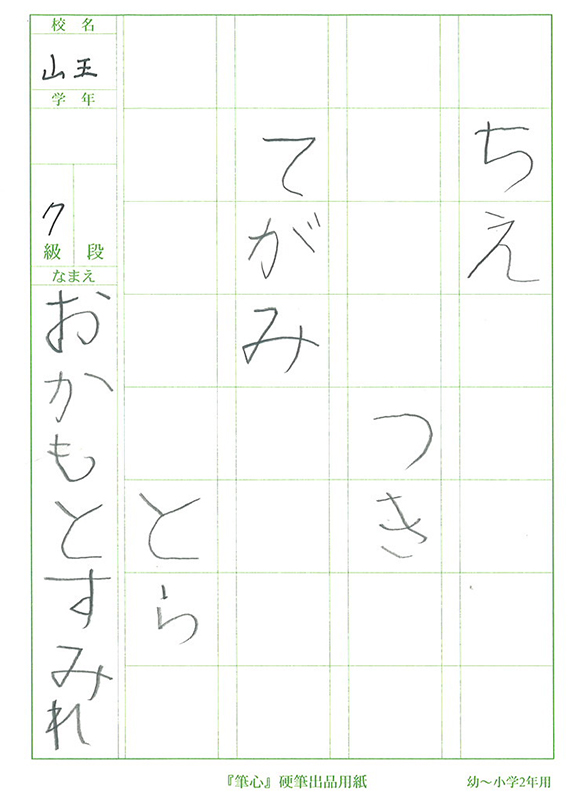 ちえ
つき
てがみ
とら
校名
山王
学年
7
級 段
なまえ
おかもとすみれ
『筆心』硬筆出品用紙
幼〜小学2年用